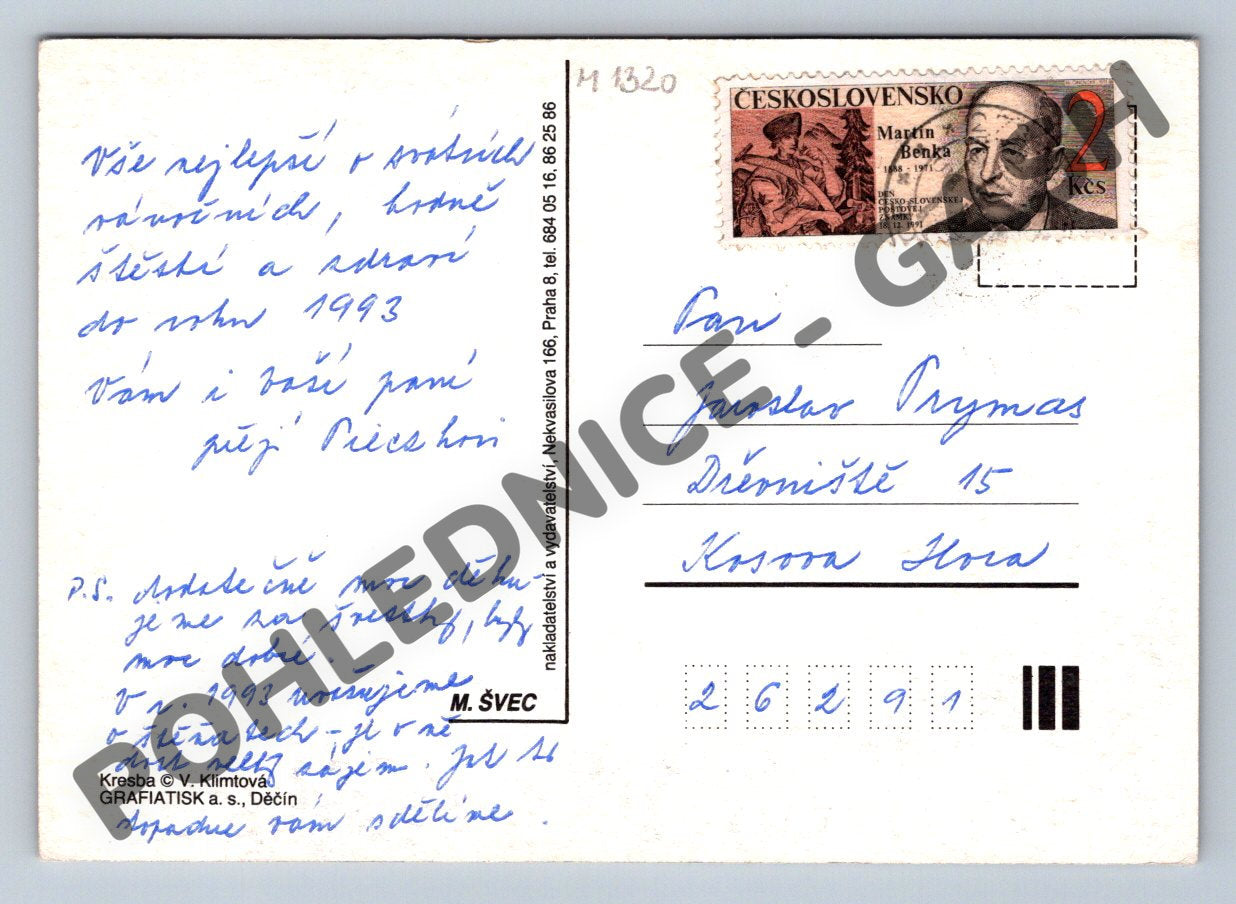 Vše nejlepší o svátcích
vánočních, hodně
štěstí a zdraví
do roku 1993
Vám i Vaší paní
přejí
P.S. dodatečně moc děku-
jeme za švestky, byly
moc dobré.
V r. 1993 uvažujeme
o štěňatech - je o ně
dost velký zájem. Jak to
dopadne vám sdělíme.
Kresba © V. Klimtová
GRAFIATISK a. s., Děčín
M. ŠVEC
nakladatelství a vydavatelství, Nekvasilova 166, Praha 8, tel. 684 05 16, 86 25 86
M 1320
ČESKOSLOVENSKO
Martin
Benka
1888 - 1971
DEN
ČESKO-SLOVENSKEJ
POŠTOVEJ
ZNÁMKY
18. 12. 1991
2
Kčs
Pan
Jaroslav Prymas
Dřevniště 15
Kosova Hora
2 6 2 9 1
POHLEDNICE - GACH